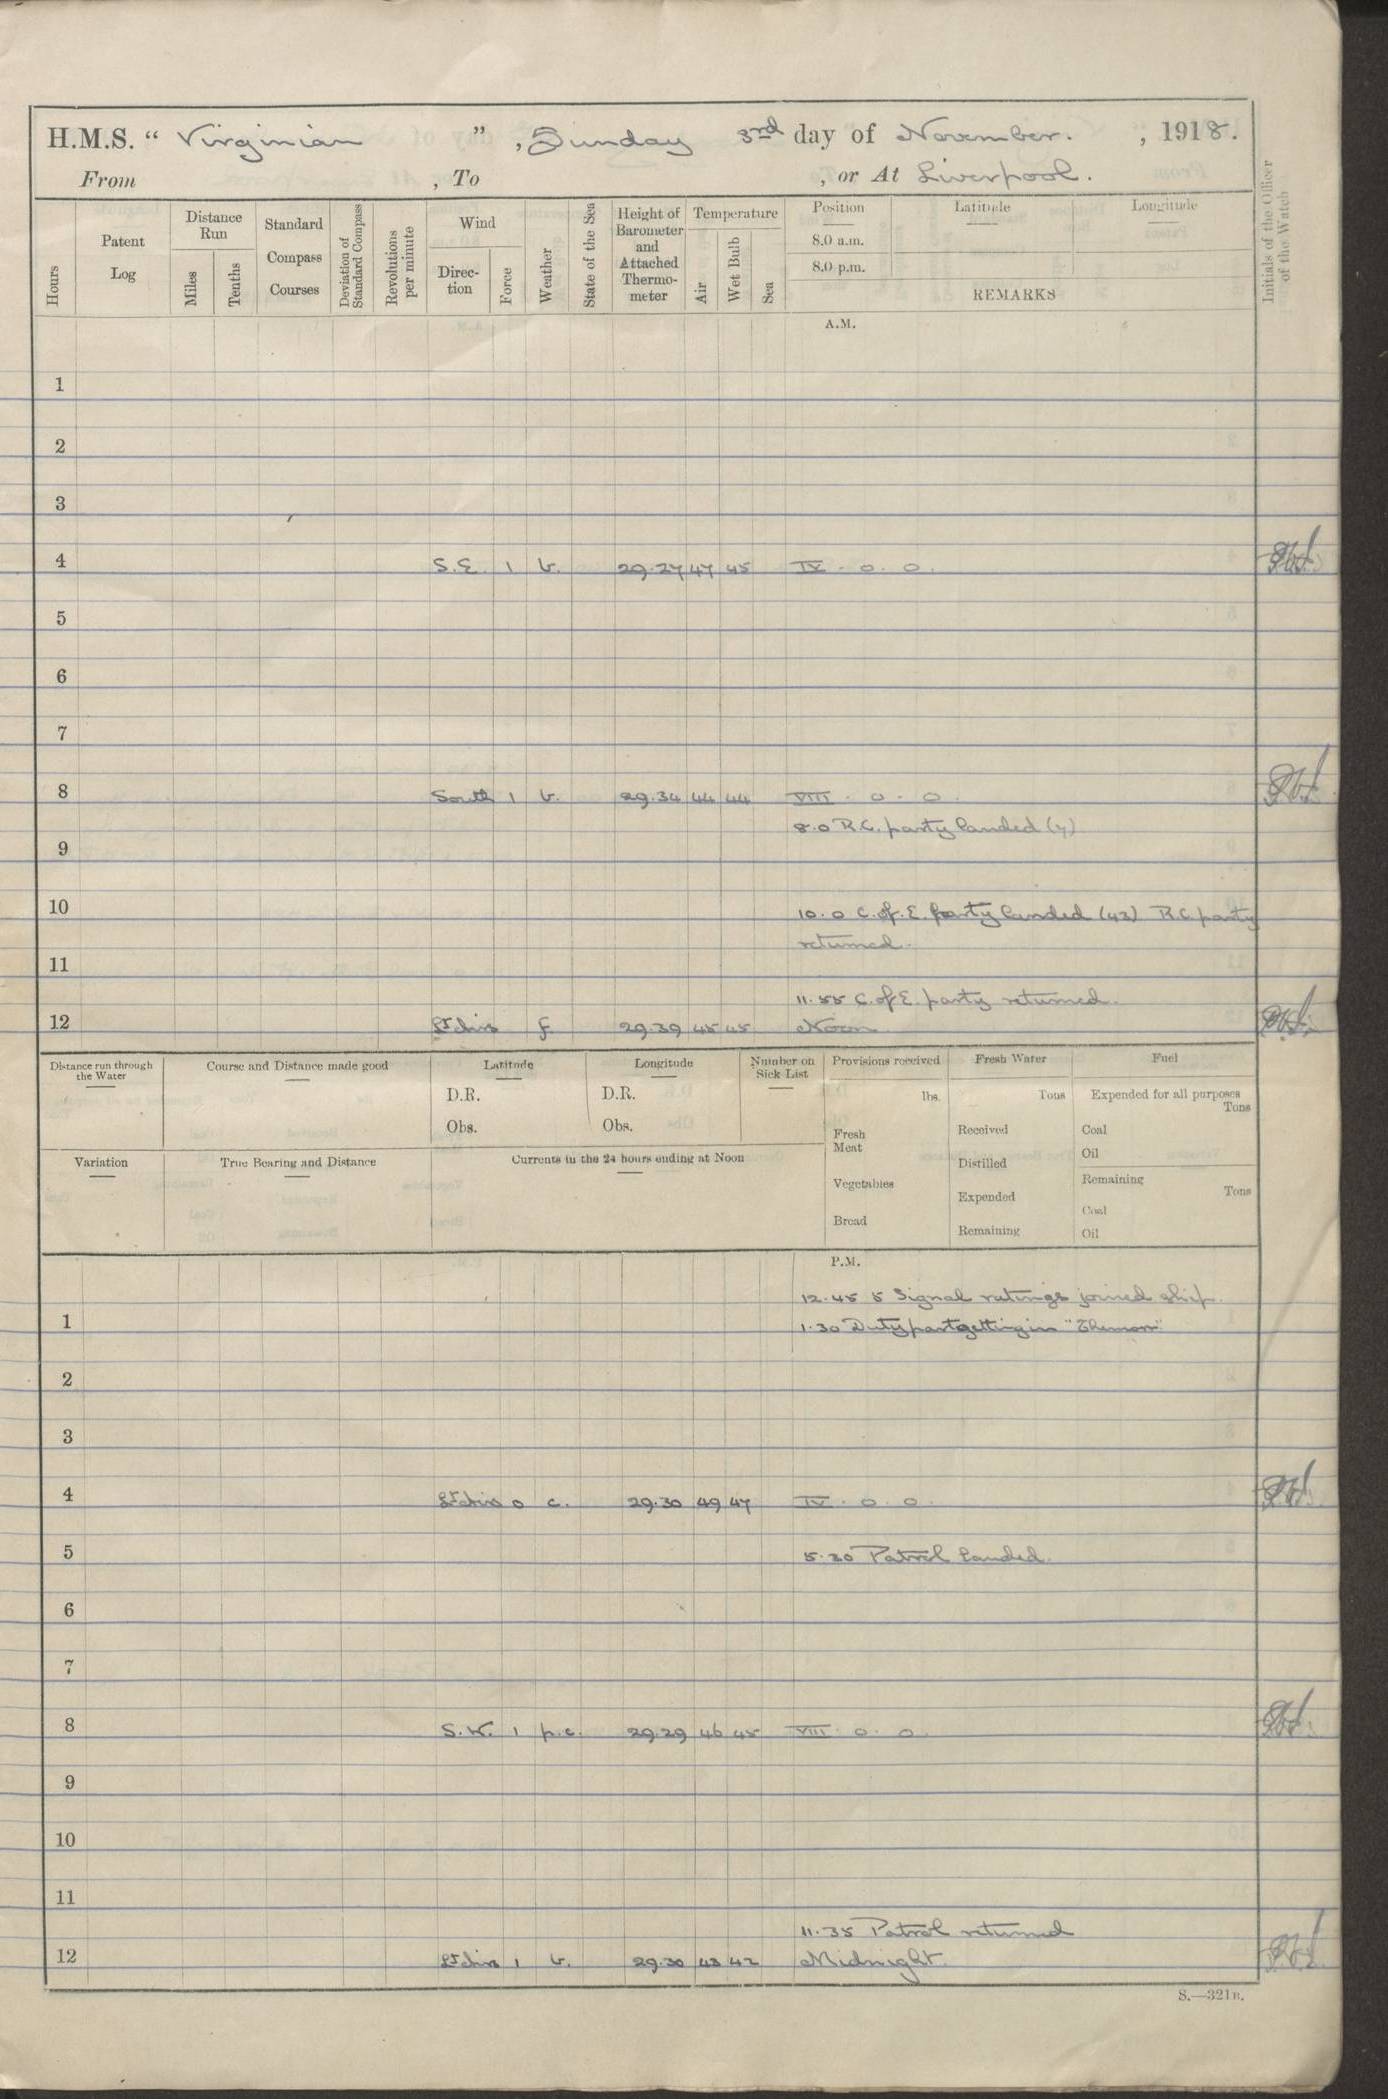 H.M.S. “ Virginian ”, Sunday 3rd day of November. , 1918.
From , To , or At Liverpool.
Hours
Patent Log
Distance Run
Miles
Tenths
Standard Compass Courses
Deviation of Standard Compass
Revolutions per minute
Wind
Direc-tion
Force
Weather
State of the Sea
Height of Barometer and Attached Thermo-meter
Temperature
Air
Wet Bulb
Sea
Position
8.0 a.m.
8.0 p.m.
Latitude
Longitude
REMARKS
Initials of the Officer of the Watch
A.M.
1
2
3
4 S.E. 1 b. 29.27 47 45 IV . 0 . 0 .
5
6
7
8 South 1 b. 29.34 44 44 VIII . 0 . 0 .
8.0 R.C. party landed (7)
9
10 10.0 C.of.E. party landed (43) R.C. party
returned.
11
11.55 C.of E. party returned.
12 Lt airs f. 29.39 45 45 Noon
Distance run through the Water
Course and Distance made good
Latitude
D.R.
Obs.
Longitude
D.R.
Obs.
Number on Sick List
Provisions received
lbs.
Fresh Meat
Vegetables
Bread
Fresh Water
Tons
Received
Distilled
Expended
Remaining
Fuel
Expended for all purposes
Tons
Coal
Oil
Remaining
Tons
Coal
Oil
Variation
True Bearing and Distance
Currents in the 24 hours ending at Noon
P.M.
12.45 5 Signal ratings joined ship.
1 1.30 Duty part getting in
2
3
4 Lt airs 0 c. 29.30 49 47 IV . 0 . 0 .
5 5.30 Patrol landed.
6
7
8 S.W. 1 p.c. 29.29 46 45 VIII . 0 . 0 .
9
10
11
11.35 Patrol returned
12 Lt airs 1 b. 29.30 43 42 Midnight.
S.—321B.